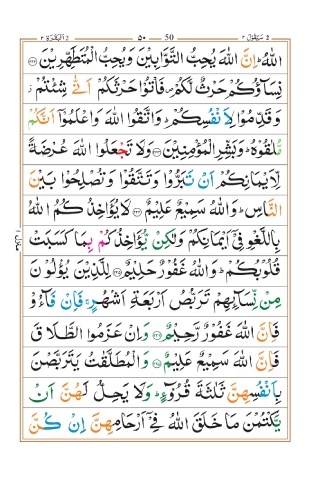 البقرة ٢ ٥٠ 50 سيقول ٢
اللّٰهُ ؕ اِنَّ اللّٰهَ يُحِبُّ التَّوَّابِيْنَ وَيُحِبُّ الْمُتَطَهِّرِيْنَ ﴿۲۲۲﴾
نِسَآؤُكُمْ حَرْثٌ لَّكُمْ ۪ فَاْتُوْا حَرْثَكُمْ اَنّٰى شِئْتُمْ ؗ
وَقَدِّمُوْا لِاَنْفُسِكُمْ ؕ وَاتَّقُوا اللّٰهَ وَاعْلَمُوْۤا اَنَّكُمْ
مُّلٰقُوْهُ ؕ وَبَشِّرِ الْمُؤْمِنِيْنَ ﴿۲۲۳﴾ وَلَا تَجْعَلُوا اللّٰهَ عُرْضَةً
لِّاَيْمَانِكُمْ اَنْ تَبَرُّوْا وَتَتَّقُوْا وَتُصْلِحُوْا بَيْنَ
النَّاسِ ؕ وَاللّٰهُ سَمِيْعٌ عَلِيْمٌ ﴿۲۲۴﴾ لَا يُؤَاخِذُكُمُ اللّٰهُ
بِاللَّغْوِ فِيْۤ اَيْمَانِكُمْ وَلٰكِنْ يُّؤَاخِذُكُمْ بِمَا كَسَبَتْ
قُلُوْبُكُمْ ؕ وَاللّٰهُ غَفُوْرٌ حَلِيْمٌ ﴿۲۲۵﴾ لِلَّذِيْنَ يُؤْلُوْنَ
مِنْ نِّسَآئِهِمْ تَرَبُّصُ اَرْبَعَةِ اَشْهُرٍ ۚ فَاِنْ فَآءُوْ
فَاِنَّ اللّٰهَ غَفُوْرٌ رَّحِيْمٌ ﴿۲۲۶﴾ وَاِنْ عَزَمُوا الطَّلَاقَ
فَاِنَّ اللّٰهَ سَمِيْعٌ عَلِيْمٌ ﴿۲۲۷﴾ وَالْمُطَلَّقٰتُ يَتَرَبَّصْنَ
بِاَنْفُسِهِنَّ ثَلٰثَةَ قُرُوْٓءٍ ؕ وَلَا يَحِلُّ لَهُنَّ اَنْ
يَّكْتُمْنَ مَا خَلَقَ اللّٰهُ فِيْۤ اَرْحَامِهِنَّ اِنْ كُنَّ
منزل ١